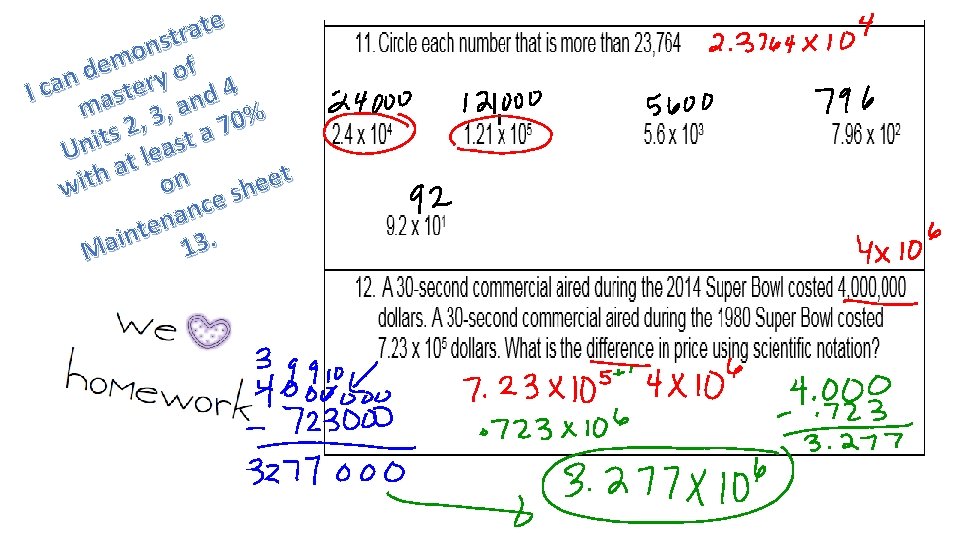 I can demonstrate
mastery of
Units 2, 3, and 4
with at least a 70%
on
Maintenance sheet
13.
We
homework
11. Circle each number that is more than 23,764 2.3764 x 10^4
24000 121000 5600 796
2.4 x 10⁴ 1.21 x 10⁵ 5.6 x 10³ 7.96 x 10²
92
9.2 x 10¹
4 x 10^6
12. A 30-second commercial aired during the 2014 Super Bowl costed 4,000,000
dollars. A 30-second commercial aired during the 1980 Super Bowl costed
7.23 x 10⁵ dollars. What is the difference in price using scientific notation?
3 9 9 10
4000000
- 723000
3277000
7.23 x 10^5+1 4 x 10^6
.723 x 10^6
4.000
- .723
3.277
3.277 x 10^6